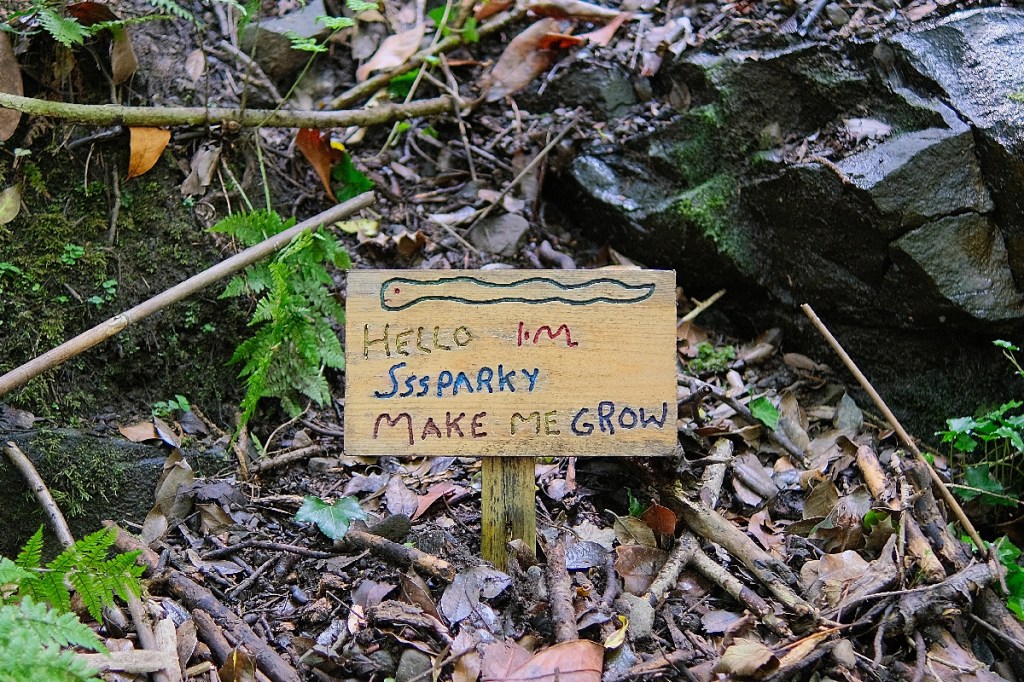 HELLO I'M
SssPARKY
MAKE ME GROW